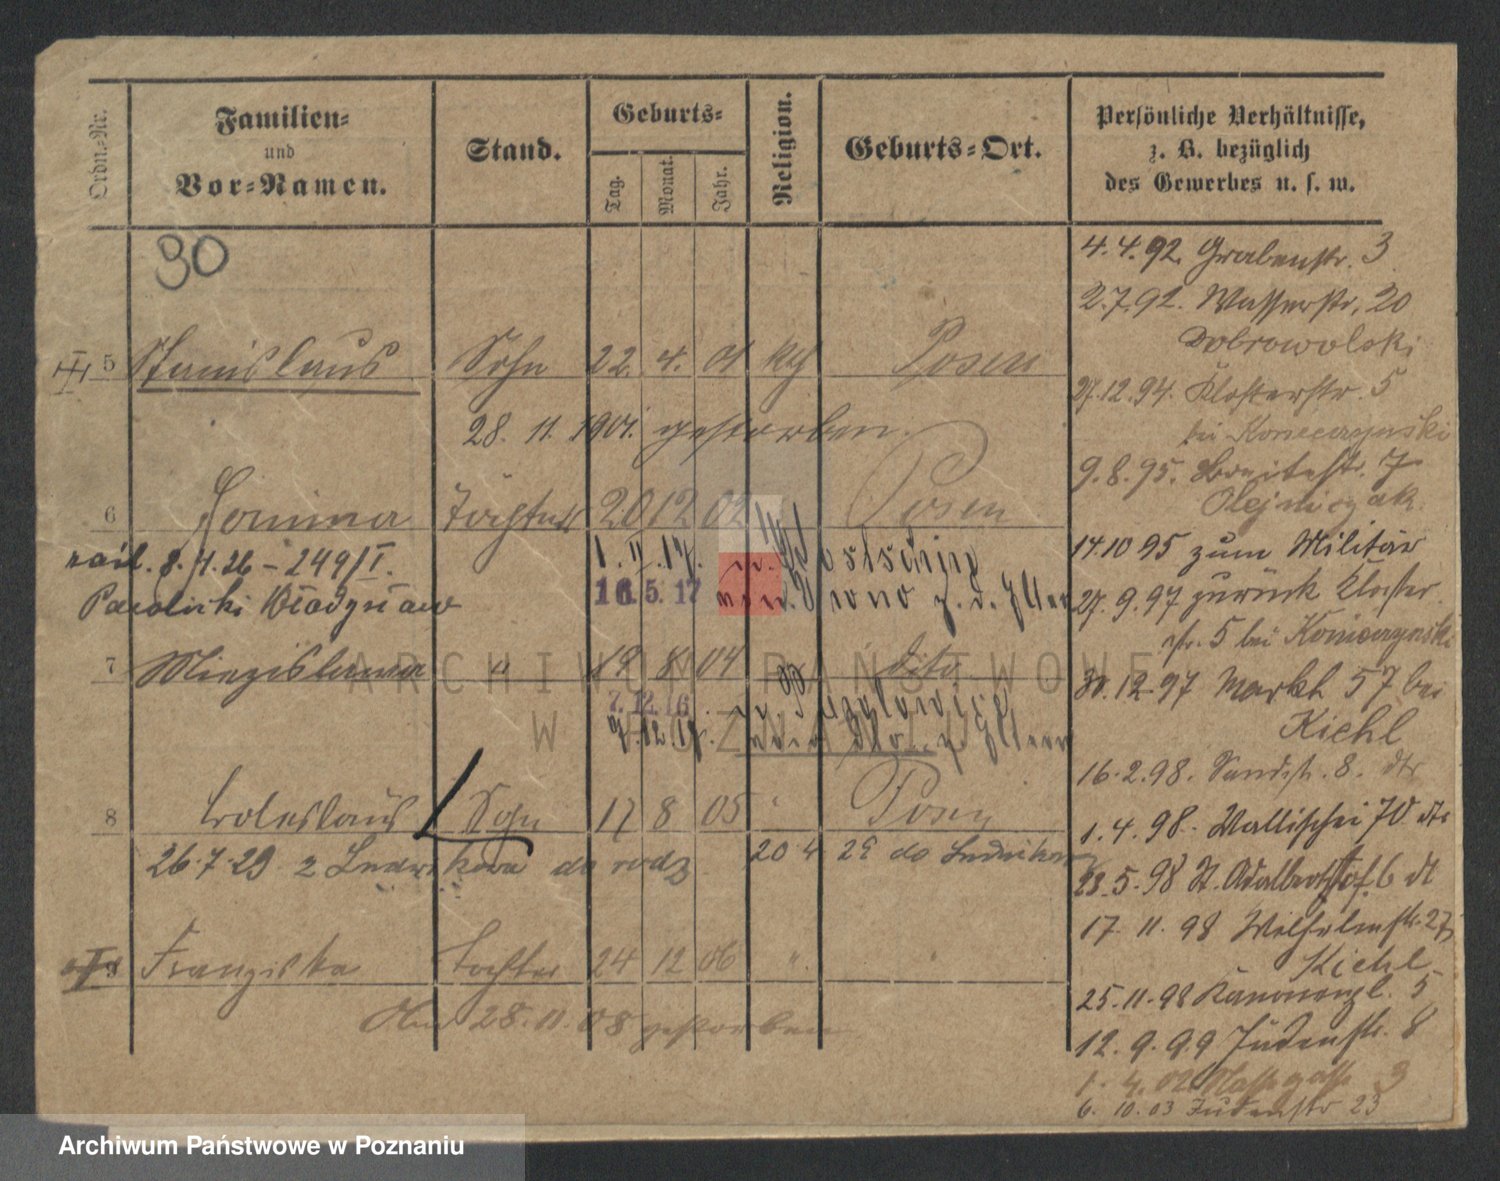 Ordn.-Nr.
Familien-
und
Vor-Namen.
Stand.
Geburts-
Tag.
Monat.
Jahr.
Religion.
Geburts-Ort.
Persönliche Verhältnisse,
z. B. bezüglich
des Gewerbes u. s. w.
30
5 Stanislaus Sohn 22. 4. 01 kth Posen
28. 11. 1901. gestorben.
6 Janina Tochter 20 12 02 Posen
8. 4. 26 – 249/I.
Władysław
1. 11. 17.
16. 5. 17
7 19 8 04 dito
7. 12. 16
8 Boleslaus Sohn 17 8 05 Posen
26.7.29 z Ludwikowa do rodz
20 4 29 do Ludwikowa
9 Franziska Tochter 24 12 06 "
28. 11. 08 gestorben
4. 4. 92. Grabenstr. 3
2. 7. 92. Wasserstr. 20
Dobrowolski
27. 12. 94. Klosterstr. 5
bei
9. 8. 95. Breitestr. 7
Olejniczak
14 10 95 zum Militär
27. 9. 97 zurück Kloster
str. 5 bei
30. 12. 97 Markt 57 bei
Kiehl
16. 2. 98. Sandstr. 8.
1. 4. 98. Wallischei 70
23. 5. 98 St. Adalbert 6
17 11. 98 Wilhelmstr. 27
Kiehl
25. 11. 98 Kanonenpl. 5
12. 9. 99 Judenstr. 8
1. 4. 02 3
6. 10. 03 Judenstr 23
ARCHIWUM PAŃSTWOWE
W POZNANIU
Archiwum Państwowe w Poznaniu